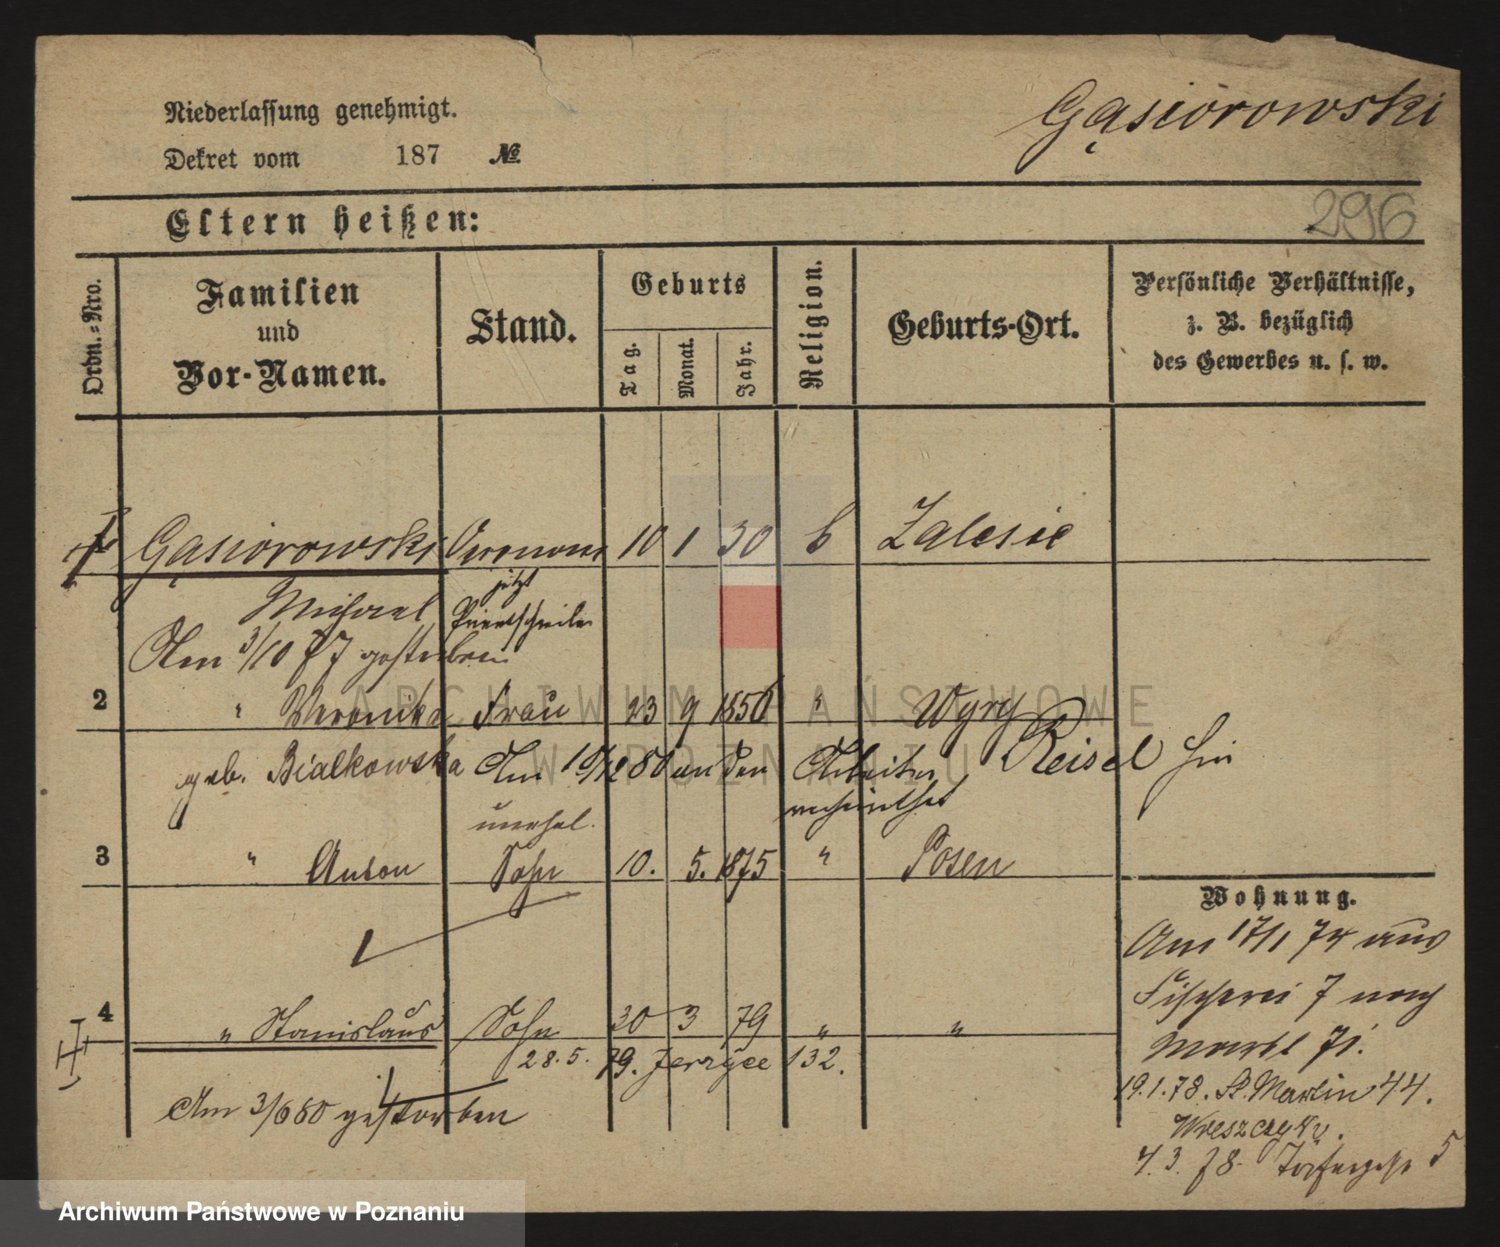 Niederlassung genehmigt.
Dekret vom 187 №
Gąsiorowski
296
Eltern heißen:
Ordn.-Nro.
Familien
und
Vor-Namen.
Stand.
Geburts
Tag.
Monat.
Jahr.
Religion.
Geburts-Ort.
Persönliche Verhältnisse,
z. B. bezüglich
des Gewerbes u. s. w.
Gąsiorowski 10 1 30 Zalesie
jetzt
Michael
Am 3/10 77 gestorben
2 " Veronika Frau 23 9 1850 " Wyry
geb. Bialkowska Am 10/12 80 an den Arbeiter Reisel hier
verheirathet
unehel.
3 " Anton Sohn 10. 5. 1875 " Posen
Wohnung.
Am 17/1 74 aus
Fischerei 7 nach
Markt 71.
4 " Stanislaus Sohn 30 3 79 " "
28. 5. 79. Jerzyce 132.
Am 3/6 80 gestorben
19. 1. 78. St. Martin 44.
4. 3. 78. 5
ARCHIWUM PAŃSTWOWE
W POZNANIU
Archiwum Państwowe w Poznaniu